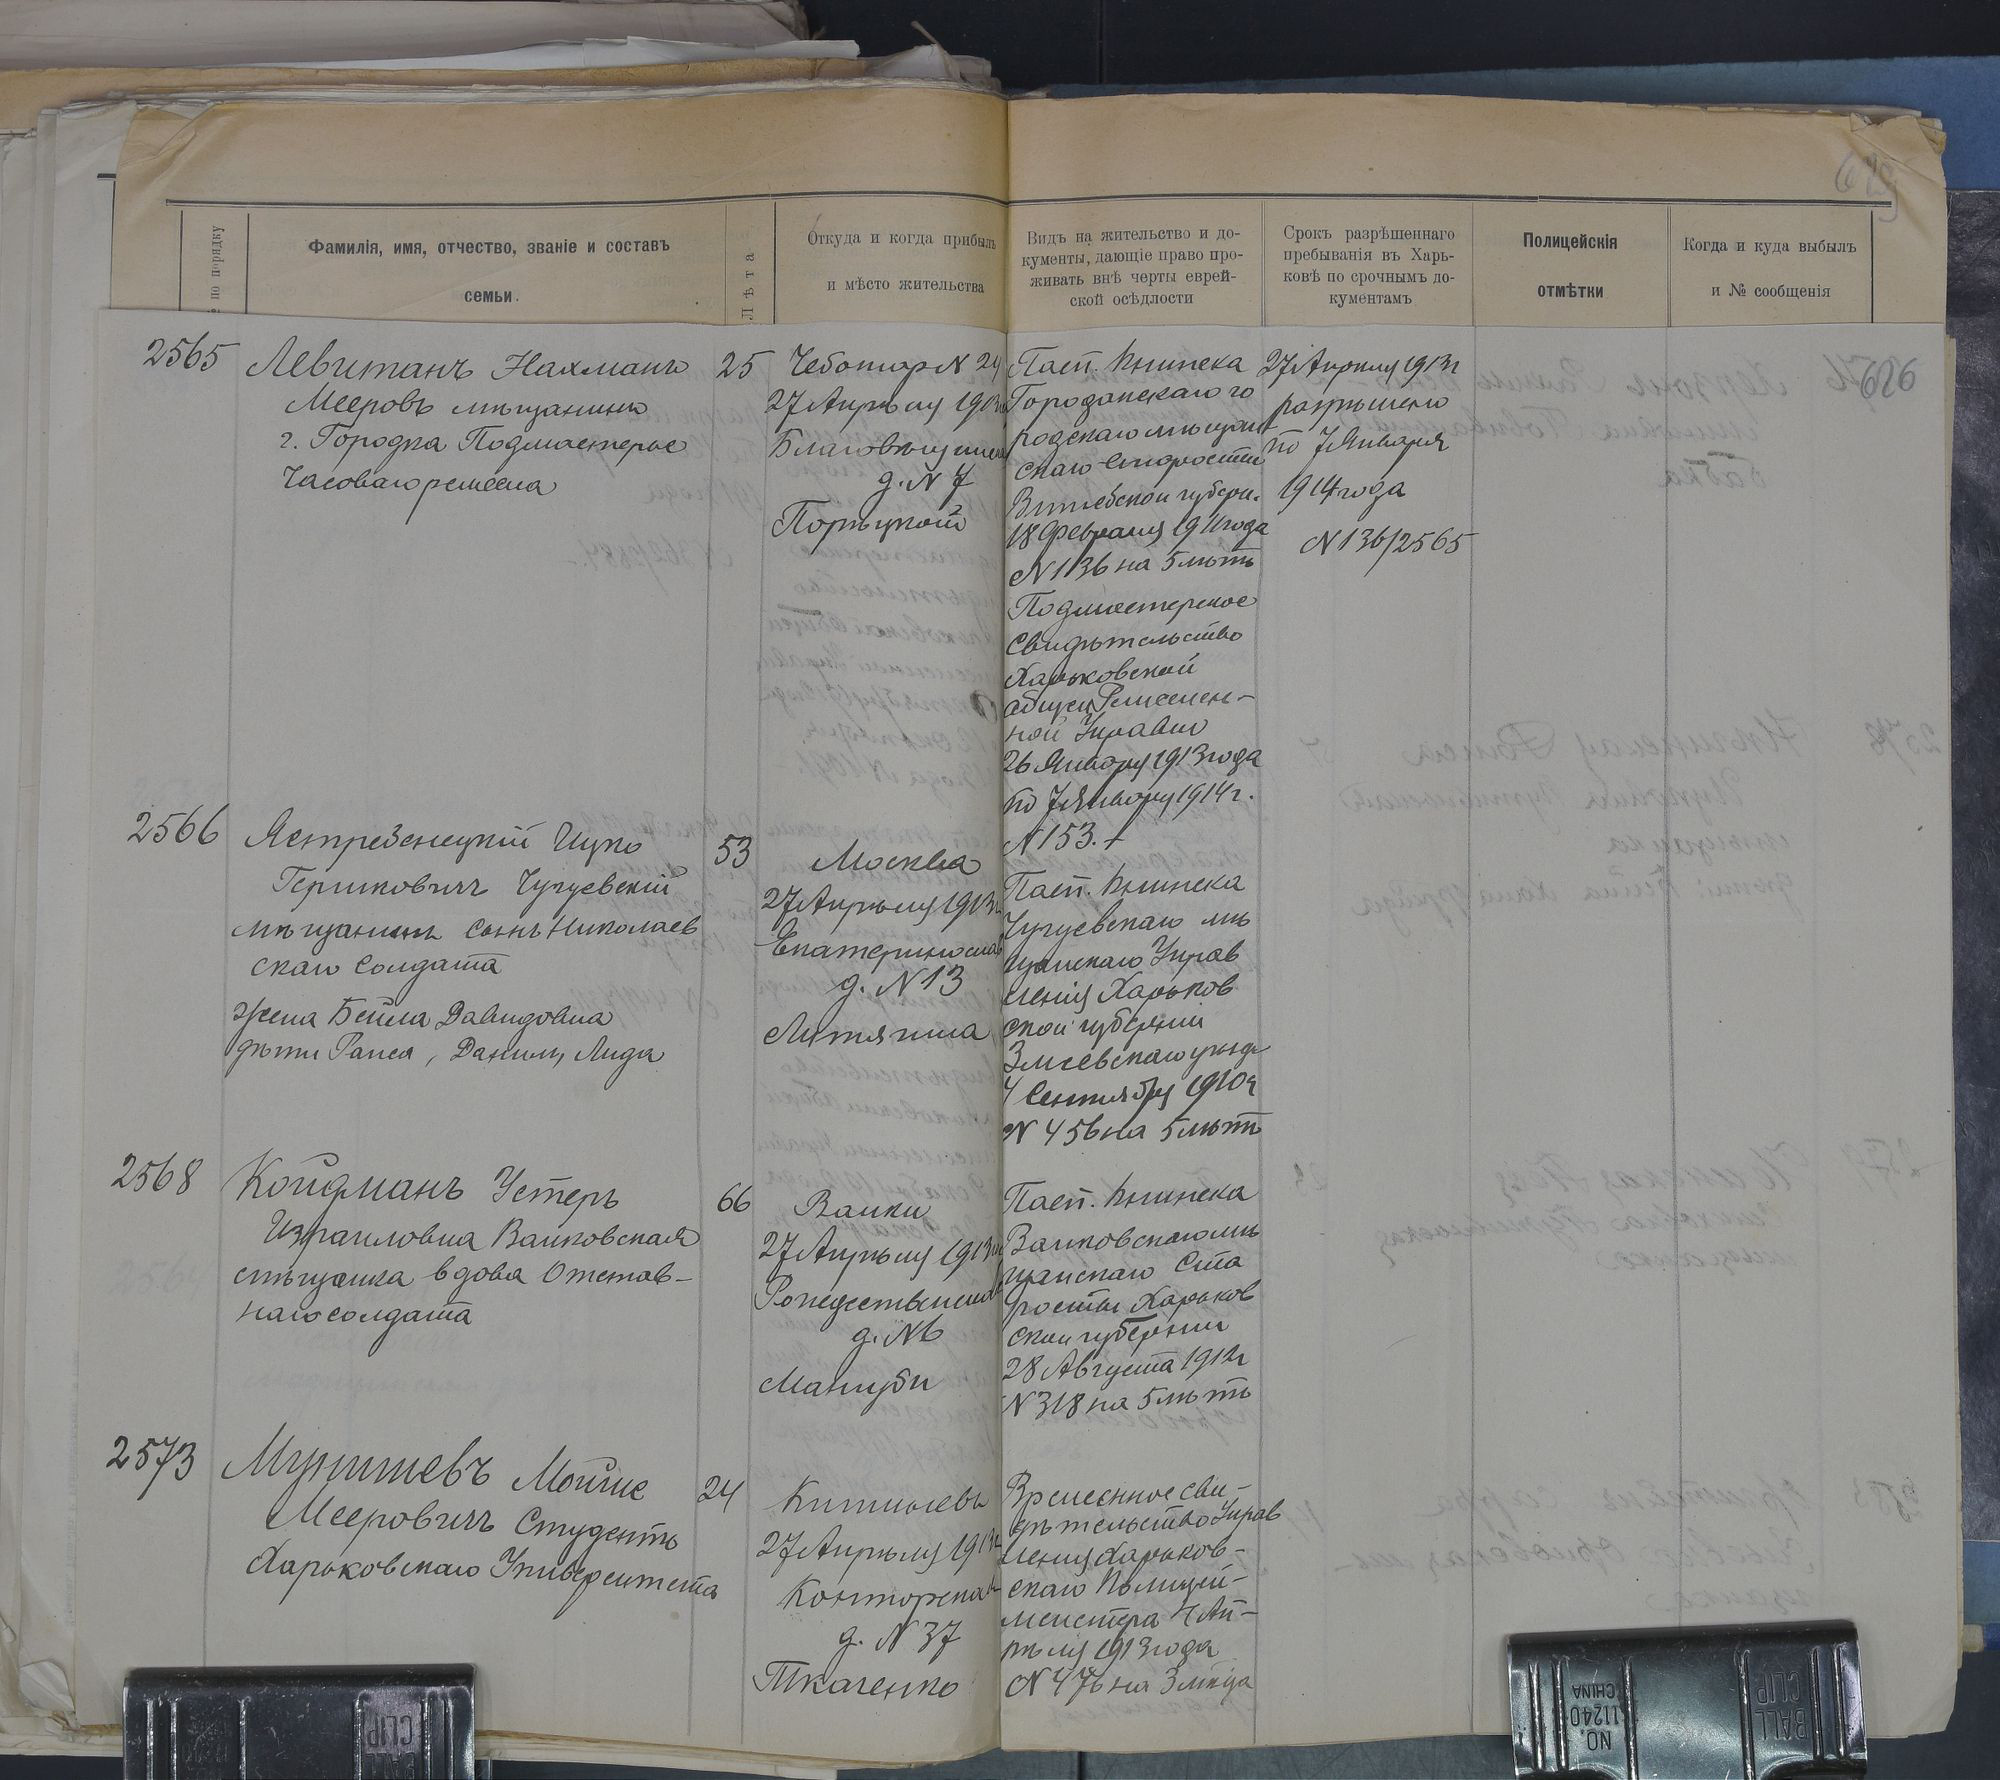 629
№ по порядку
Фамилія, имя, отчество, званіе и составъ
семьи.
Лѣта
Откуда и когда прибылъ
и мѣсто жительства
Видъ на жительство и до-
кументы, дающіе право про-
живать внѣ черты еврей-
ской осѣдлости
Срокъ разрѣшеннаго
пребыванія въ Харь-
ковѣ по срочнымъ до-
кументамъ
Полицейскія
отмѣтки
Когда и куда выбылъ
и № сообщенія
2565
Левитанъ Нахманъ
Мееровъ мѣщанинъ
г. Городка Подмастерье
Часоваго ремесла
25
Чеботар N 24
27 Апрѣля 1913
Благовѣщенск
д. N 7
Порѣцкой
Пасп. Книжка
Городокскаго го
родскаго мѣщан
скаго Старосты
Витебской губерн.
18 Февраля 1911 года
N 1136 на 5 лѣтъ
Подмастерское
Свидѣтельство
Харьковской
общей Ремеслен-
ной Управы
26 Января 1913 года
по 7 Января 1914 г.
N 153.
27 Апрѣля 1913 г
разрѣшено
по 7 Января
1914 года
N 136/2565
2566
Ястребенецкій Ицко
Гершковичъ Чугуевскій
мѣщанинъ Сынъ Николаев
скаго Солдата
жена Бейла Давидовна
дѣти Раиса, Данiил, Лида
53
Москва
27 Апрѣля 1913 г
Екатеринослав
д. N 13
Литягина
Пасп. Книжка
Чугуевскаго мѣ
щанскаго Управ
ленія Харьков
ской губерніи
Зміевскаго уѣзда
4 Сентября 1910 г
N 456 на 5 лѣтъ
2568
Койфманъ Устеръ
Израиловна Валковская
мѣщанка вдова Отстав-
наго солдата
66
Валки
27 Апрѣля 1913 г
Рождественская
д. N 6
Мануби
Пасп. Книжка
Валковскаго мѣ
щанскаго Ста
росты Харьков
ской губерніи
28 Августа 1912 г
N 318 на 5 лѣтъ
2573
Мойше
Мееровичъ Студентъ
Харьковскаго Университета
24
Кишиневъ
27 Апрѣля 1913 г
Конторская
д. N 37
Ткаченко
Временное сви-
дѣтельство Управ
ленія Харьков-
скаго Полицей-
мейстера 4 Ап-
рѣля 1913 года
N 476 на 3 мѣсяца
BALL
CLIP
NO.
11240
CHINA
BALL
CLIP